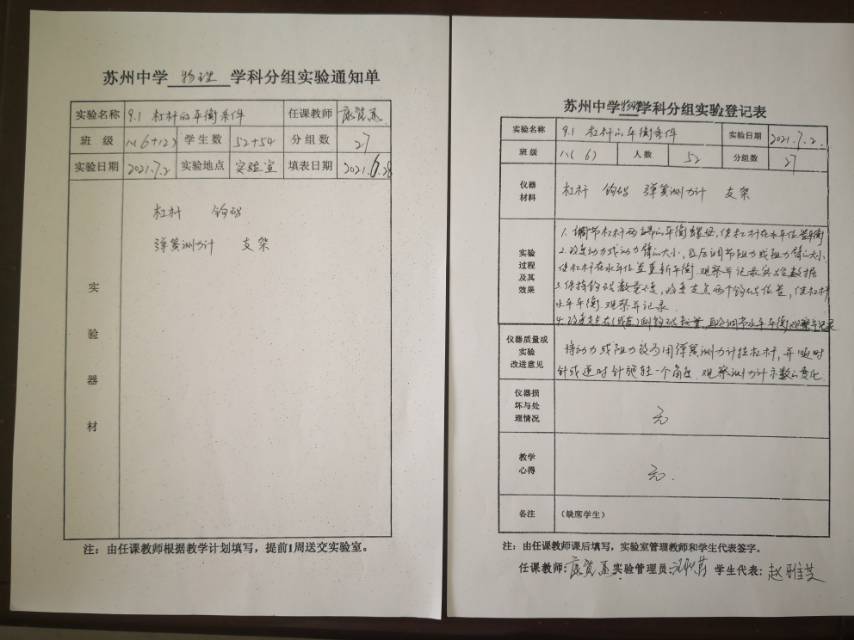 苏州中学 物理 学科分组实验通知单
实验名称 9.1 杠杆的平衡条件 任课教师
班 级 八(6+12) 学生数 52+54 分组数 27
实验日期 2021.7.2 实验地点 实验室 填表日期 2021.6.28
杠杆 钩码
弹簧测力计 支架
实
验
器
材
注：由任课教师根据教学计划填写，提前1周送交实验室。
苏州中学物理学科分组实验登记表
实验名称 9.1 杠杆的平衡条件 实验日期 2021.7.2.
班 级 八(6) 人数 52 分组数 27
仪器
材料
杠杆 钩码 弹簧测力计 支架
实验
过程
及其
效果
1. 调节杠杆两端的平衡螺母，使杠杆在水平位置平衡
2. 改变动力或动力臂的大小，且后调节阻力或阻力臂的大小，
使杠杆在水平位置重新平衡 观察并记录实验数据
3. 保持钩码数量不变，改变支点两个钩码位置，使杠杆
水平平衡 观察并记录
4. 改变支点右(或左)侧钩码数量，且调节水平平衡 观察并记录
仪器质量或
实验
改进意见
将动力或阻力改为用弹簧测力计拉杠杆，并顺时
针或逆时针旋转一个角度 观察测力计示数的变化
仪器损
坏与处
理情况
无
教学
心得
无.
备注 (缺席学生)
注：由任课教师课后填写，实验室管理教师和学生代表签字。
任课教师： 实验管理员： 学生代表：赵雅芝